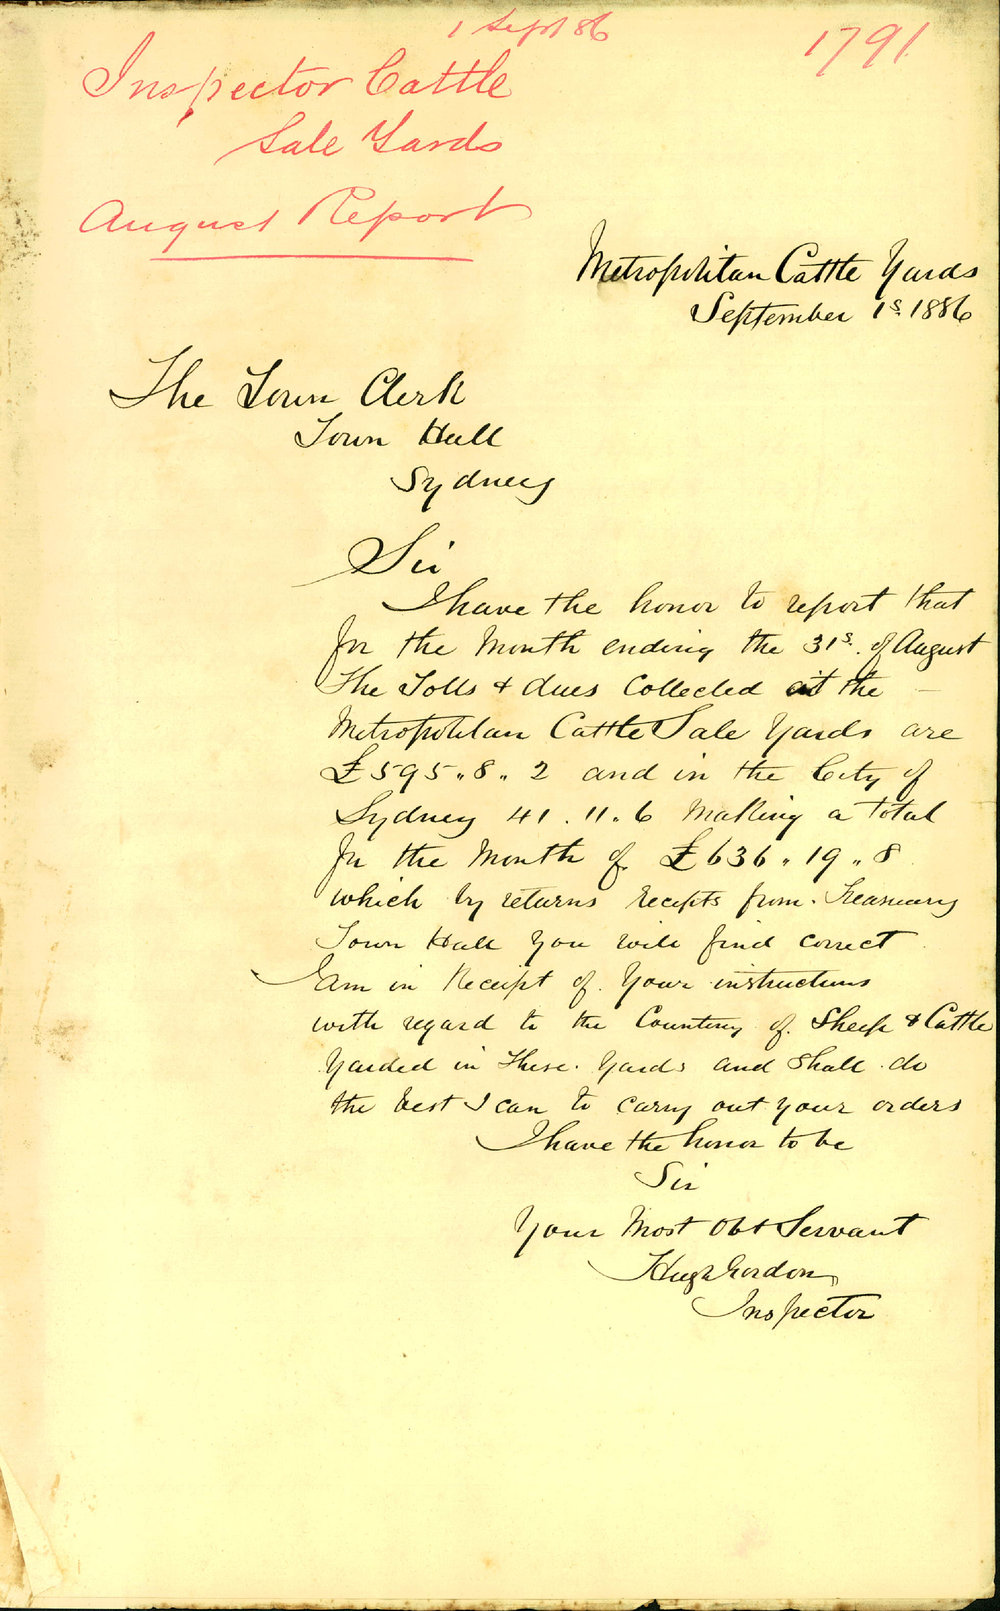 1 Sept 86
1791
Inspector Cattle
Sale Yards
August Report
Metropolitan Cattle Yards
September 1s. 1886
The Town Clerk
Town Hall
Sydney
Sir
I have the honor to report that
for the Month ending the 31s. of August
The Tolls & dues Collected at the -
Metropolitan Cattle Sale Yards are
£595.8.2 and in the City of
Sydney 41.11.6 Making a total
for the Month of £636.19.8
which by returns receipts from Treasury
Town Hall you will find correct
I am in Receipt of Your instructions
with regard to the Counting of Sheep & Cattle
Yarded in These Yards and Shall do
the best I can to carry out your orders
I have the honor to be
Sir
Your Most Obt Servant
Hugh Gordon
Inspector